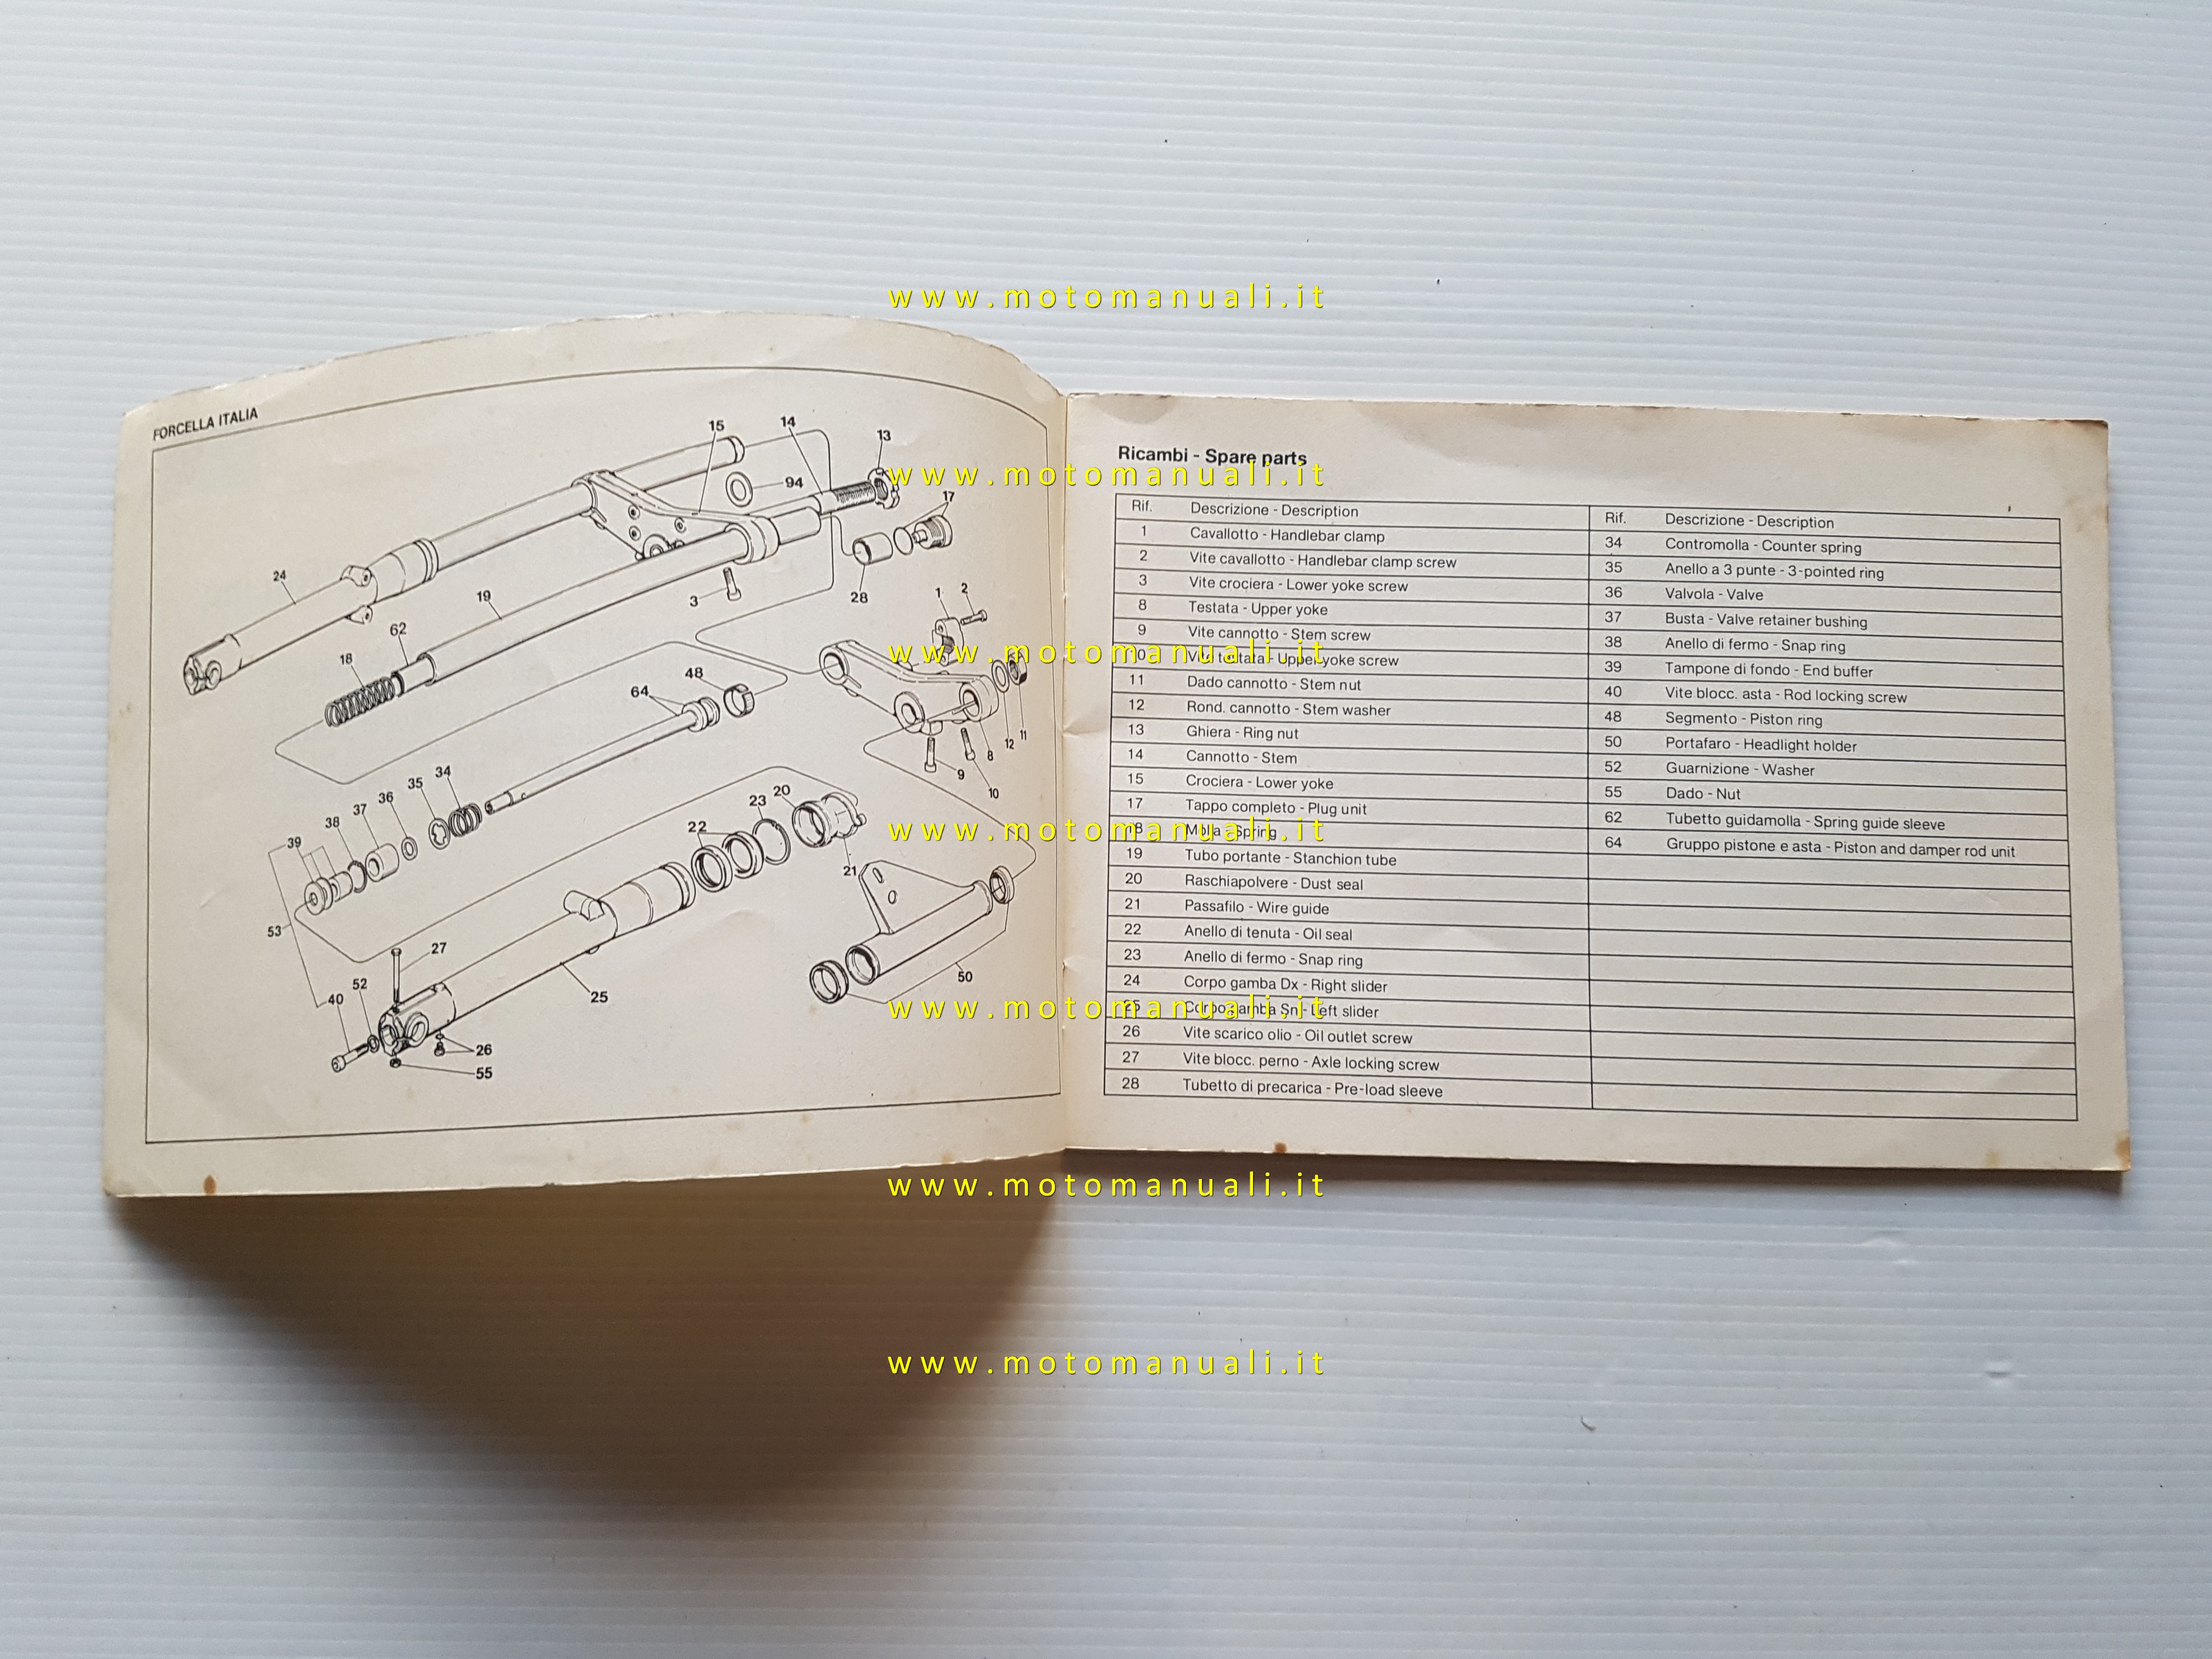 www.motomanuali.it
FORCELLA ITALIA
15
14
13
94
17
24
19
3
28
1
2
62
18
48
64
8
12
11
9
10
34
35
36
37
38
39
20
23
22
21
53
27
52
40
25
50
26
55
Ricambi - Spare parts
www.motomanuali.it
Rif. Descrizione - Description
1 Cavallotto - Handlebar clamp
2 Vite cavallotto - Handlebar clamp screw
3 Vite crociera - Lower yoke screw
8 Testata - Upper yoke
9 Vite cannotto - Stem screw
10 Vite testata - Upper yoke screw
www.motomanuali.it
11 Dado cannotto - Stem nut
12 Rond. cannotto - Stem washer
13 Ghiera - Ring nut
14 Cannotto - Stem
15 Crociera - Lower yoke
17 Tappo completo - Plug unit
18 Molla - Spring
www.motomanuali.it
19 Tubo portante - Stanchion tube
20 Raschiapolvere - Dust seal
21 Passafilo - Wire guide
22 Anello di tenuta - Oil seal
23 Anello di fermo - Snap ring
24 Corpo gamba Dx - Right slider
25 Corpo gamba Sn - Left slider
www.motomanuali.it
26 Vite scarico olio - Oil outlet screw
27 Vite blocc. perno - Axle locking screw
28 Tubetto di precarica - Pre-load sleeve
Rif. Descrizione - Description
34 Contromolla - Counter spring
35 Anello a 3 punte - 3-pointed ring
36 Valvola - Valve
37 Busta - Valve retainer bushing
38 Anello di fermo - Snap ring
39 Tampone di fondo - End buffer
40 Vite blocc. asta - Rod locking screw
48 Segmento - Piston ring
50 Portafaro - Headlight holder
52 Guarnizione - Washer
55 Dado - Nut
62 Tubetto guidamolla - Spring guide sleeve
64 Gruppo pistone e asta - Piston and damper rod unit
www.motomanuali.it
www.motomanuali.it